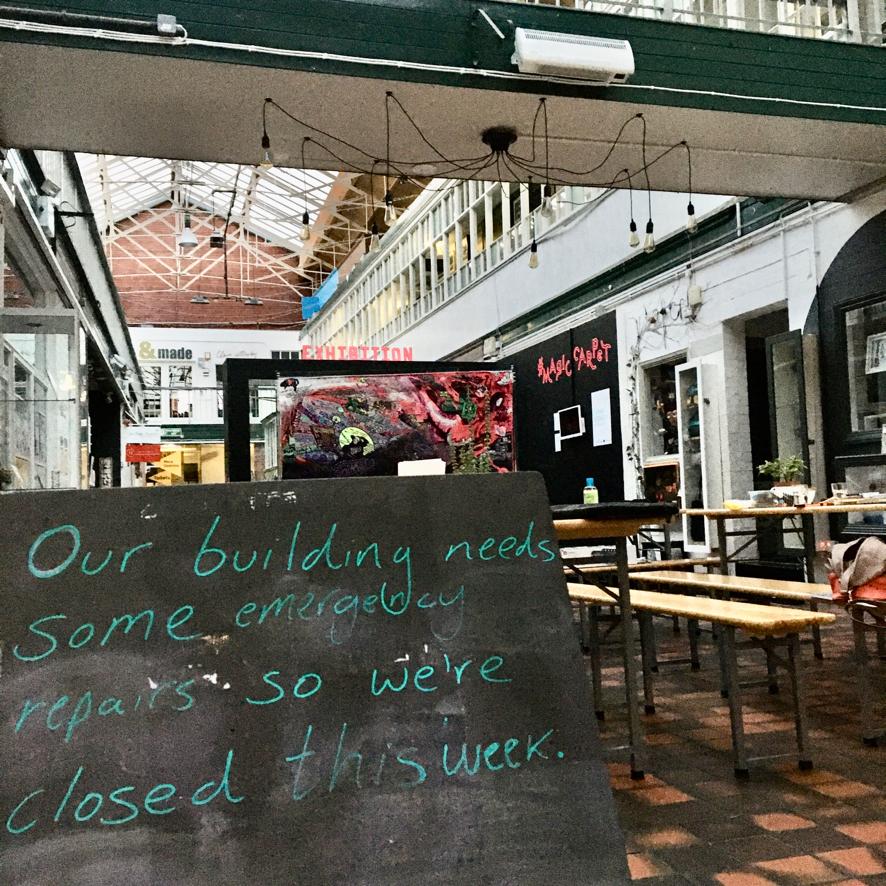 & made
EXHIBITION
MAGIC CARPET
Our building needs
some emergency
repairs so we're
closed this week.